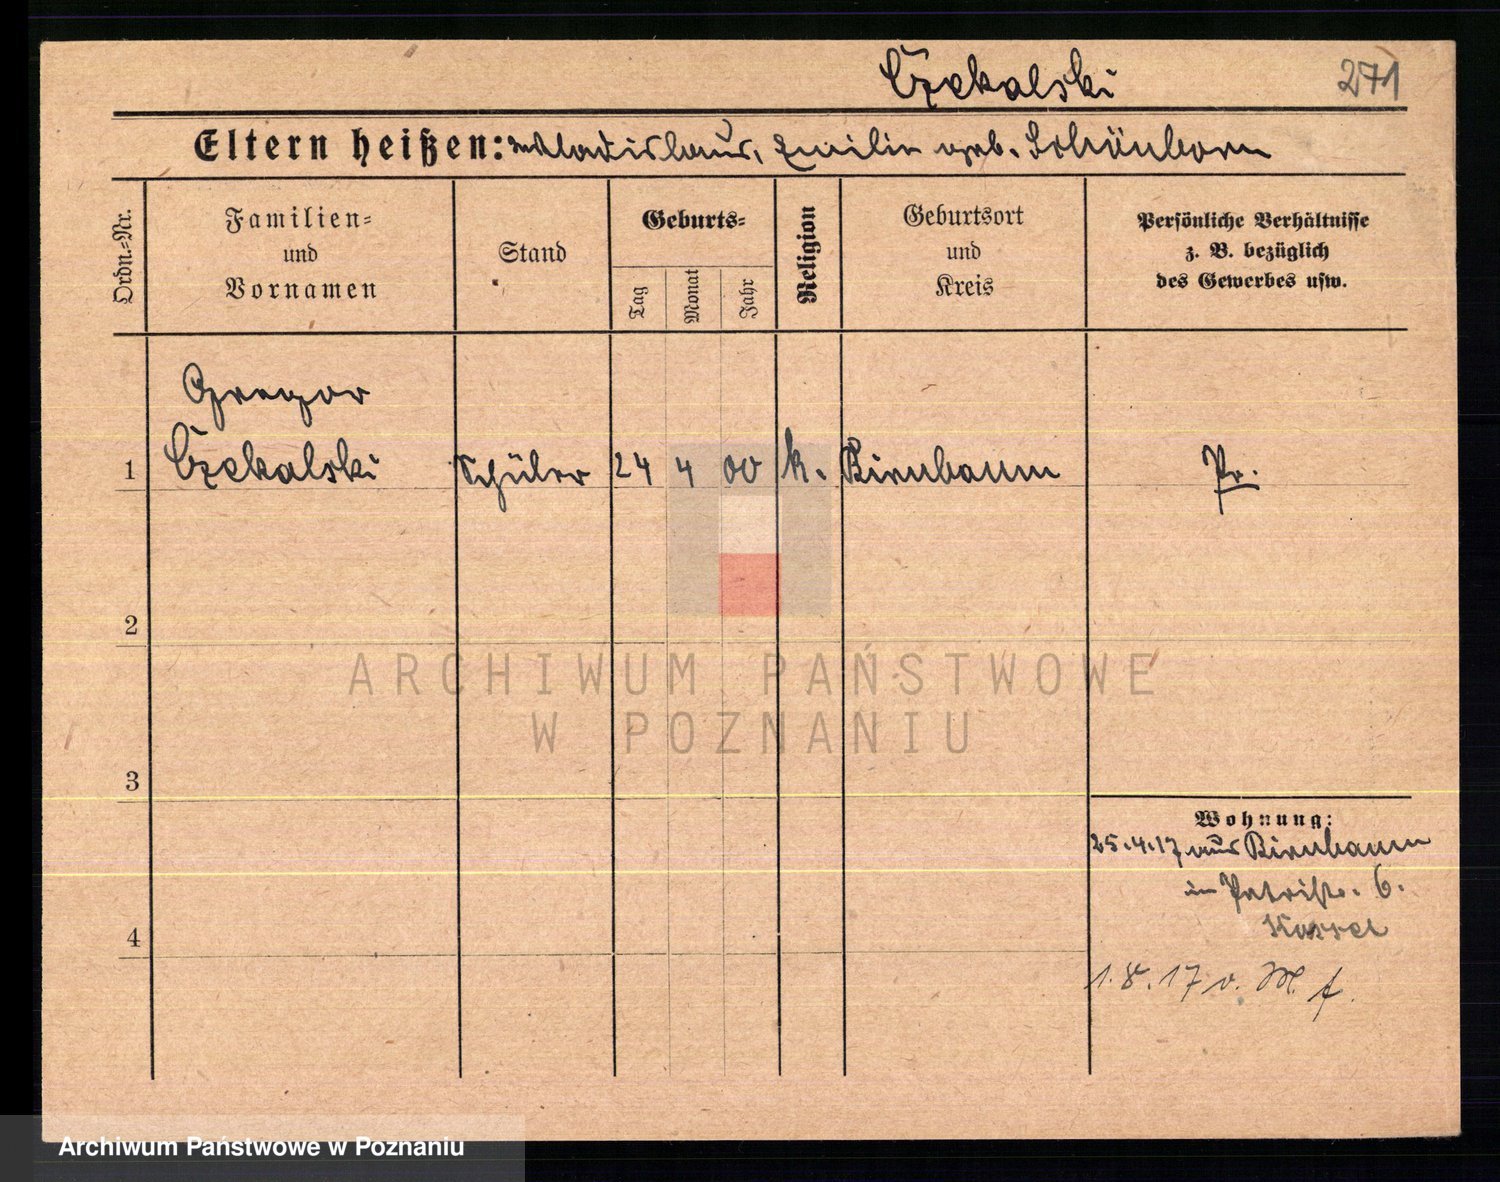 Czekalski 271
Eltern heißen: Wladislaus, Emilie geb. Schönborn
Ordn.=Nr.
Familien=
und
Vornamen
Stand
Geburts=
Tag
Monat
Jahr
Religion
Geburtsort
und
Kreis
Persönliche Verhältnisse
z. B. bezüglich
des Gewerbes usw.
Gregor
1 Czekalski Schüler 24 4 00 k. Birnbaum Pr.
2
ARCHIWUM PAŃSTWOWE
W POZNANIU
3
Wohnung:
25.4.17 aus Birnbaum
in Petristr. 6.
4
1.8.17 v.
Archiwum Państwowe w Poznaniu